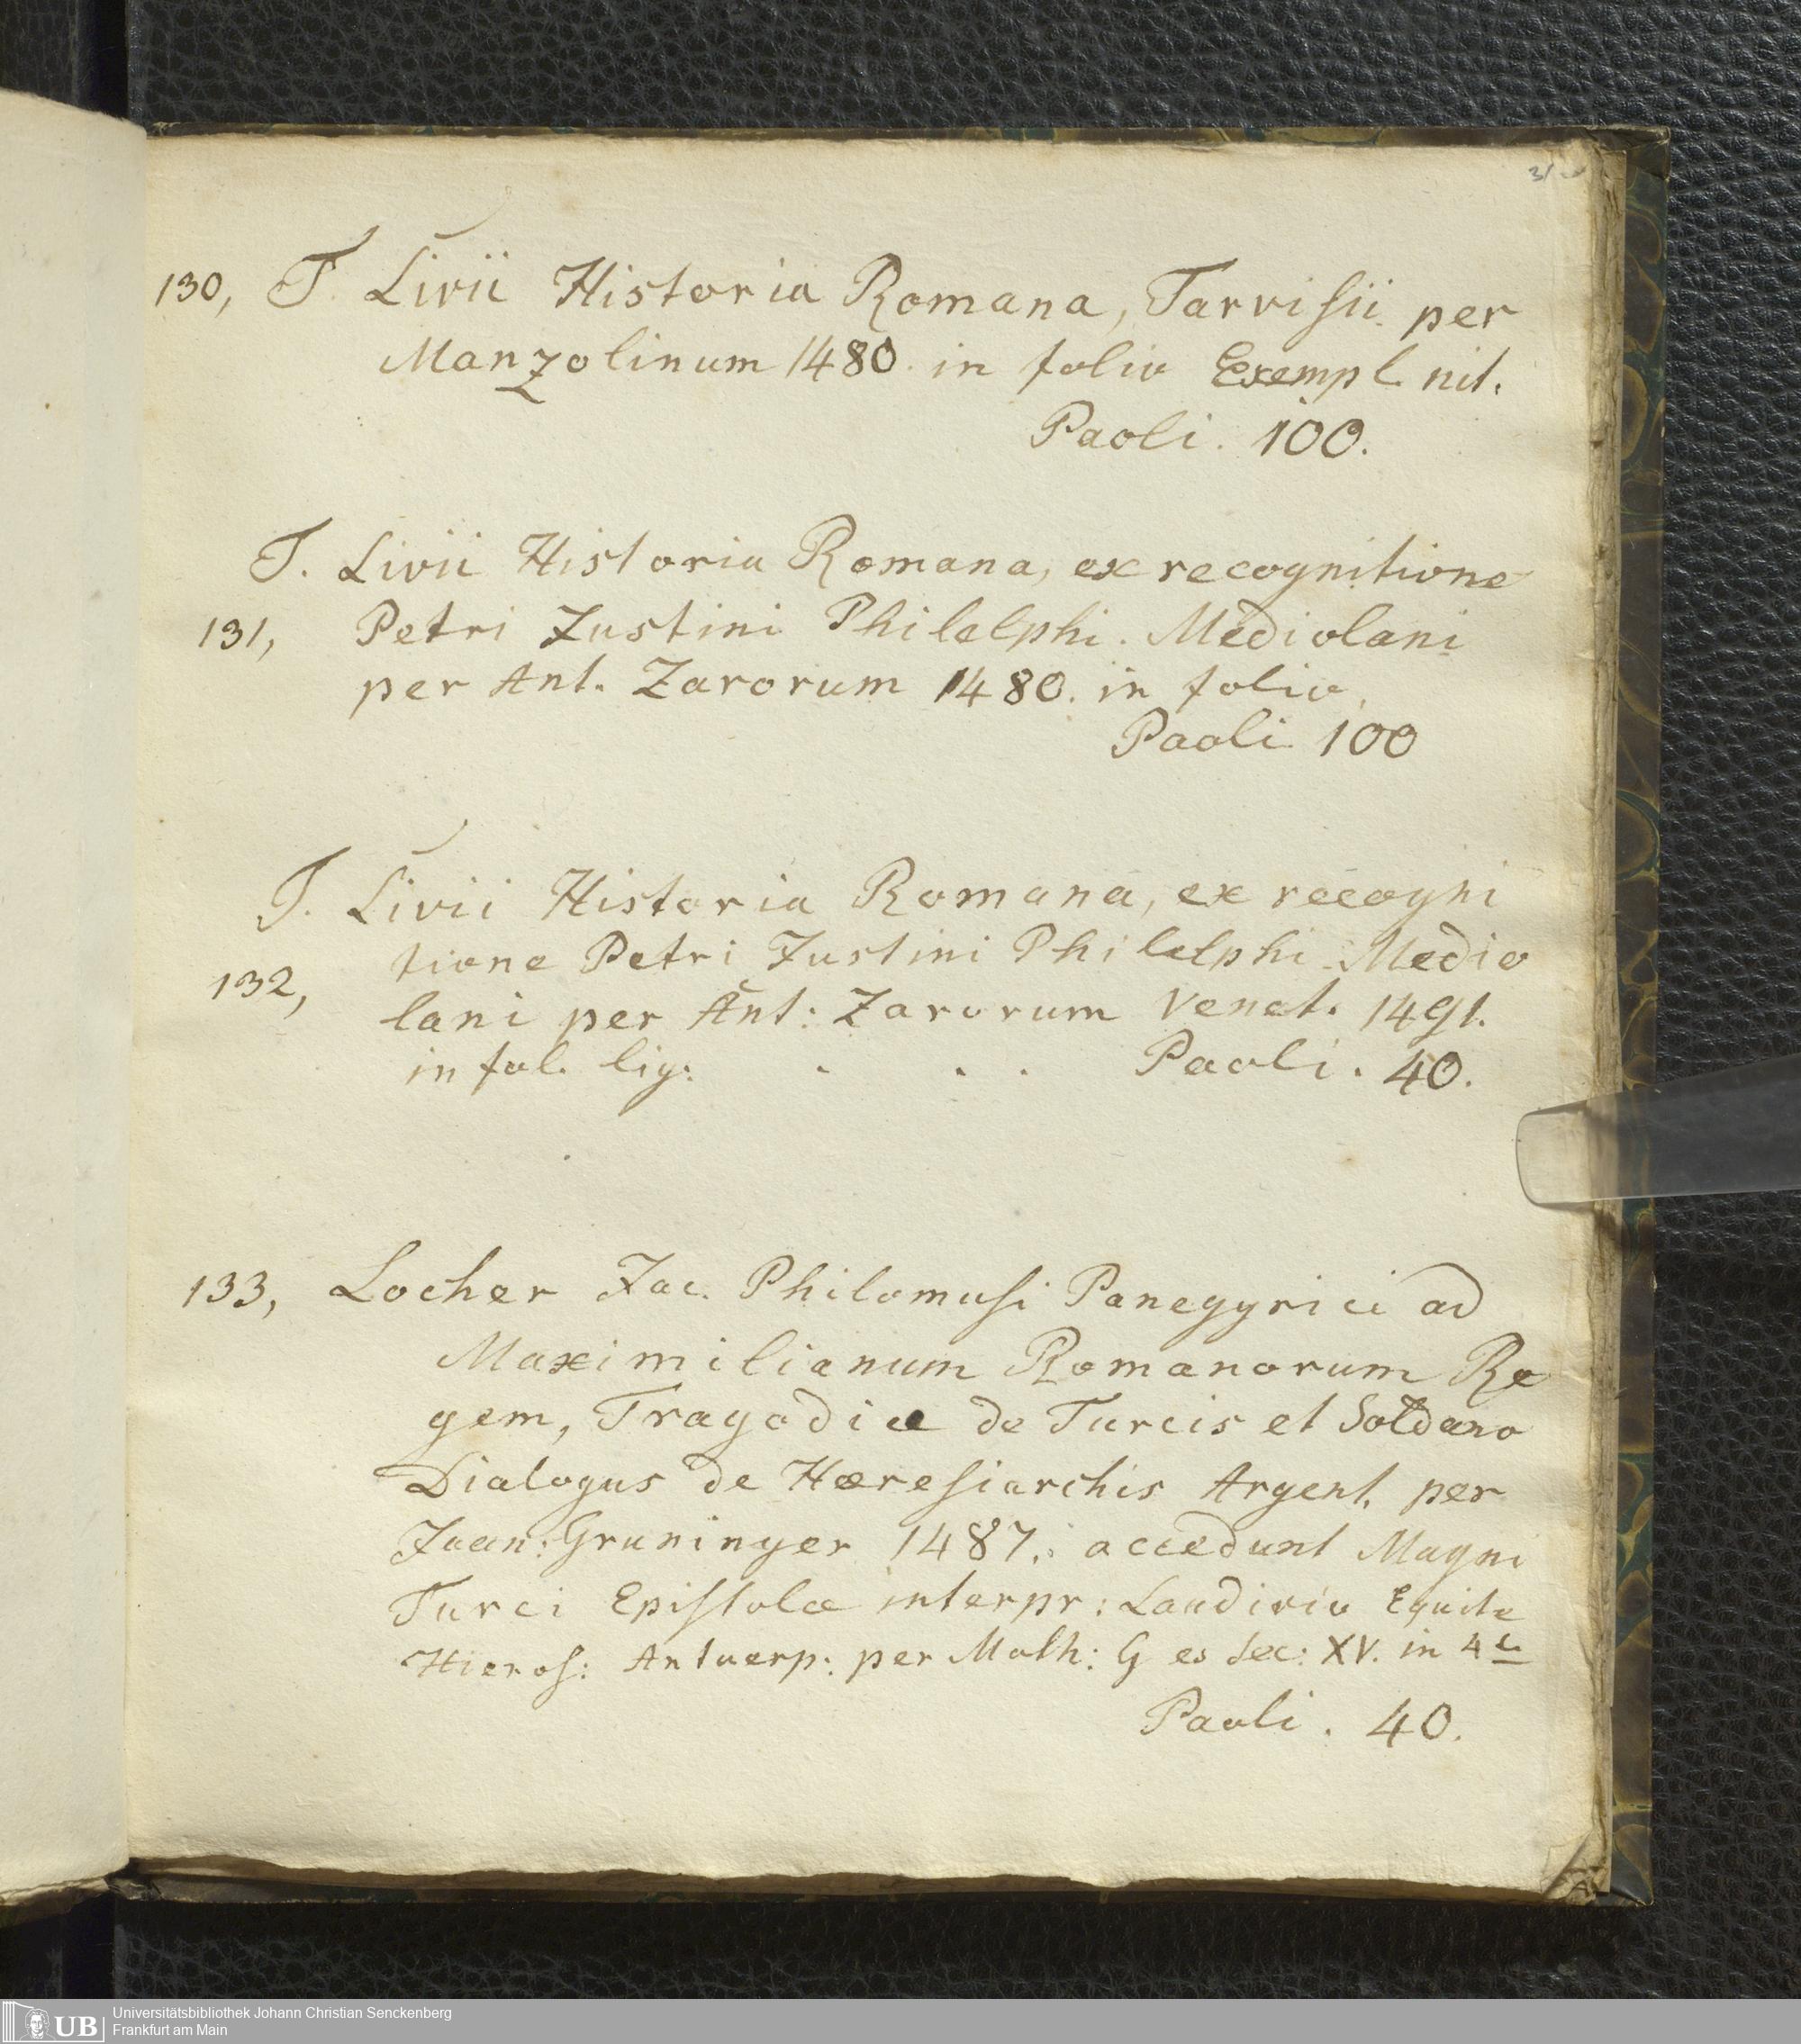 31
130, T. Livii Historia Romana, Tarvisii per
Manzolinum 1480. in folio Exempl. nit.
Paoli. 100.
T. Livii Historia Romana, ex recognitione
131, Petri Justini Philelphi. Mediolani
per Ant. Zarorum 1480. in folio.
Paoli. 100
T. Livii Historia Romana, ex recogni
tione Petri Justini Philelphi. Medio
132, lani per Ant: Zarorum Venet. 1491.
in fol. lig: . . . Paoli. 40.
133, Locher Jac. Philomusi Panegyrici ad
Maximilianum Romanorum Re
gem, Tragodiæ de Turcis et Soldano
Dialogus de Hæresiarchis Argent. per
Joan: Gruninger 1487. accedunt Magni
Turci Epistolæ interpr: Laudivio Equite
Hieros: Antuerp: per Math: G es Sec: XV. in 4to
Paoli. 40.
UB Universitätsbibliothek Johann Christian Senckenberg
Frankfurt am Main